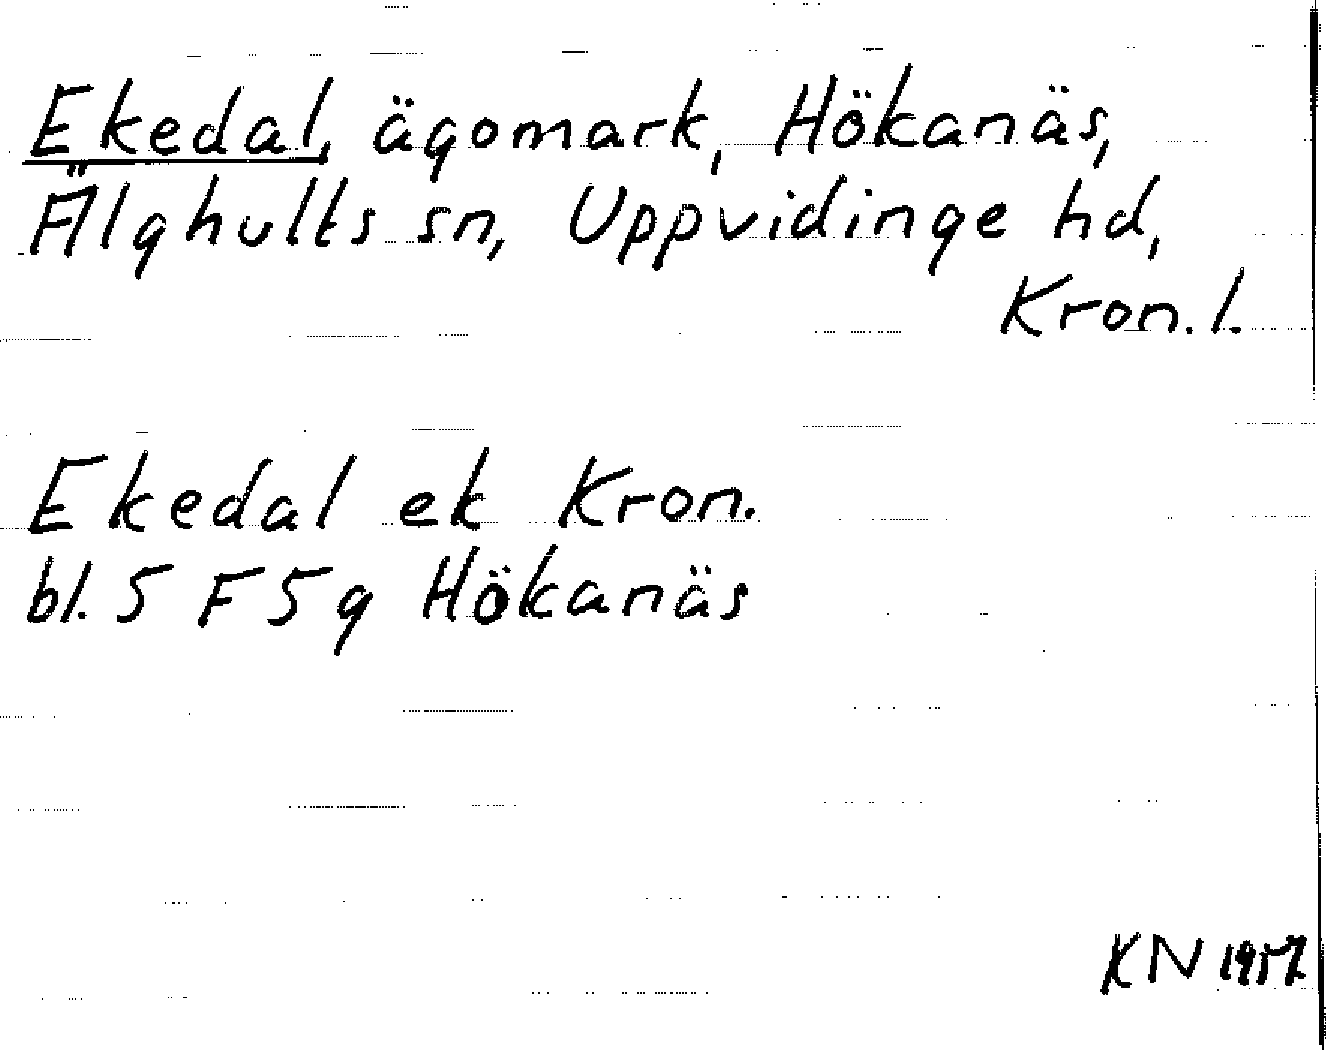 Ekedal, ägomark, Hökanäs,
Älghults sn, Uppvidinge hd,
Kron. l.
Ekedal ek Kron.
bl. 5 F 5 g Hökanäs
KN 1957